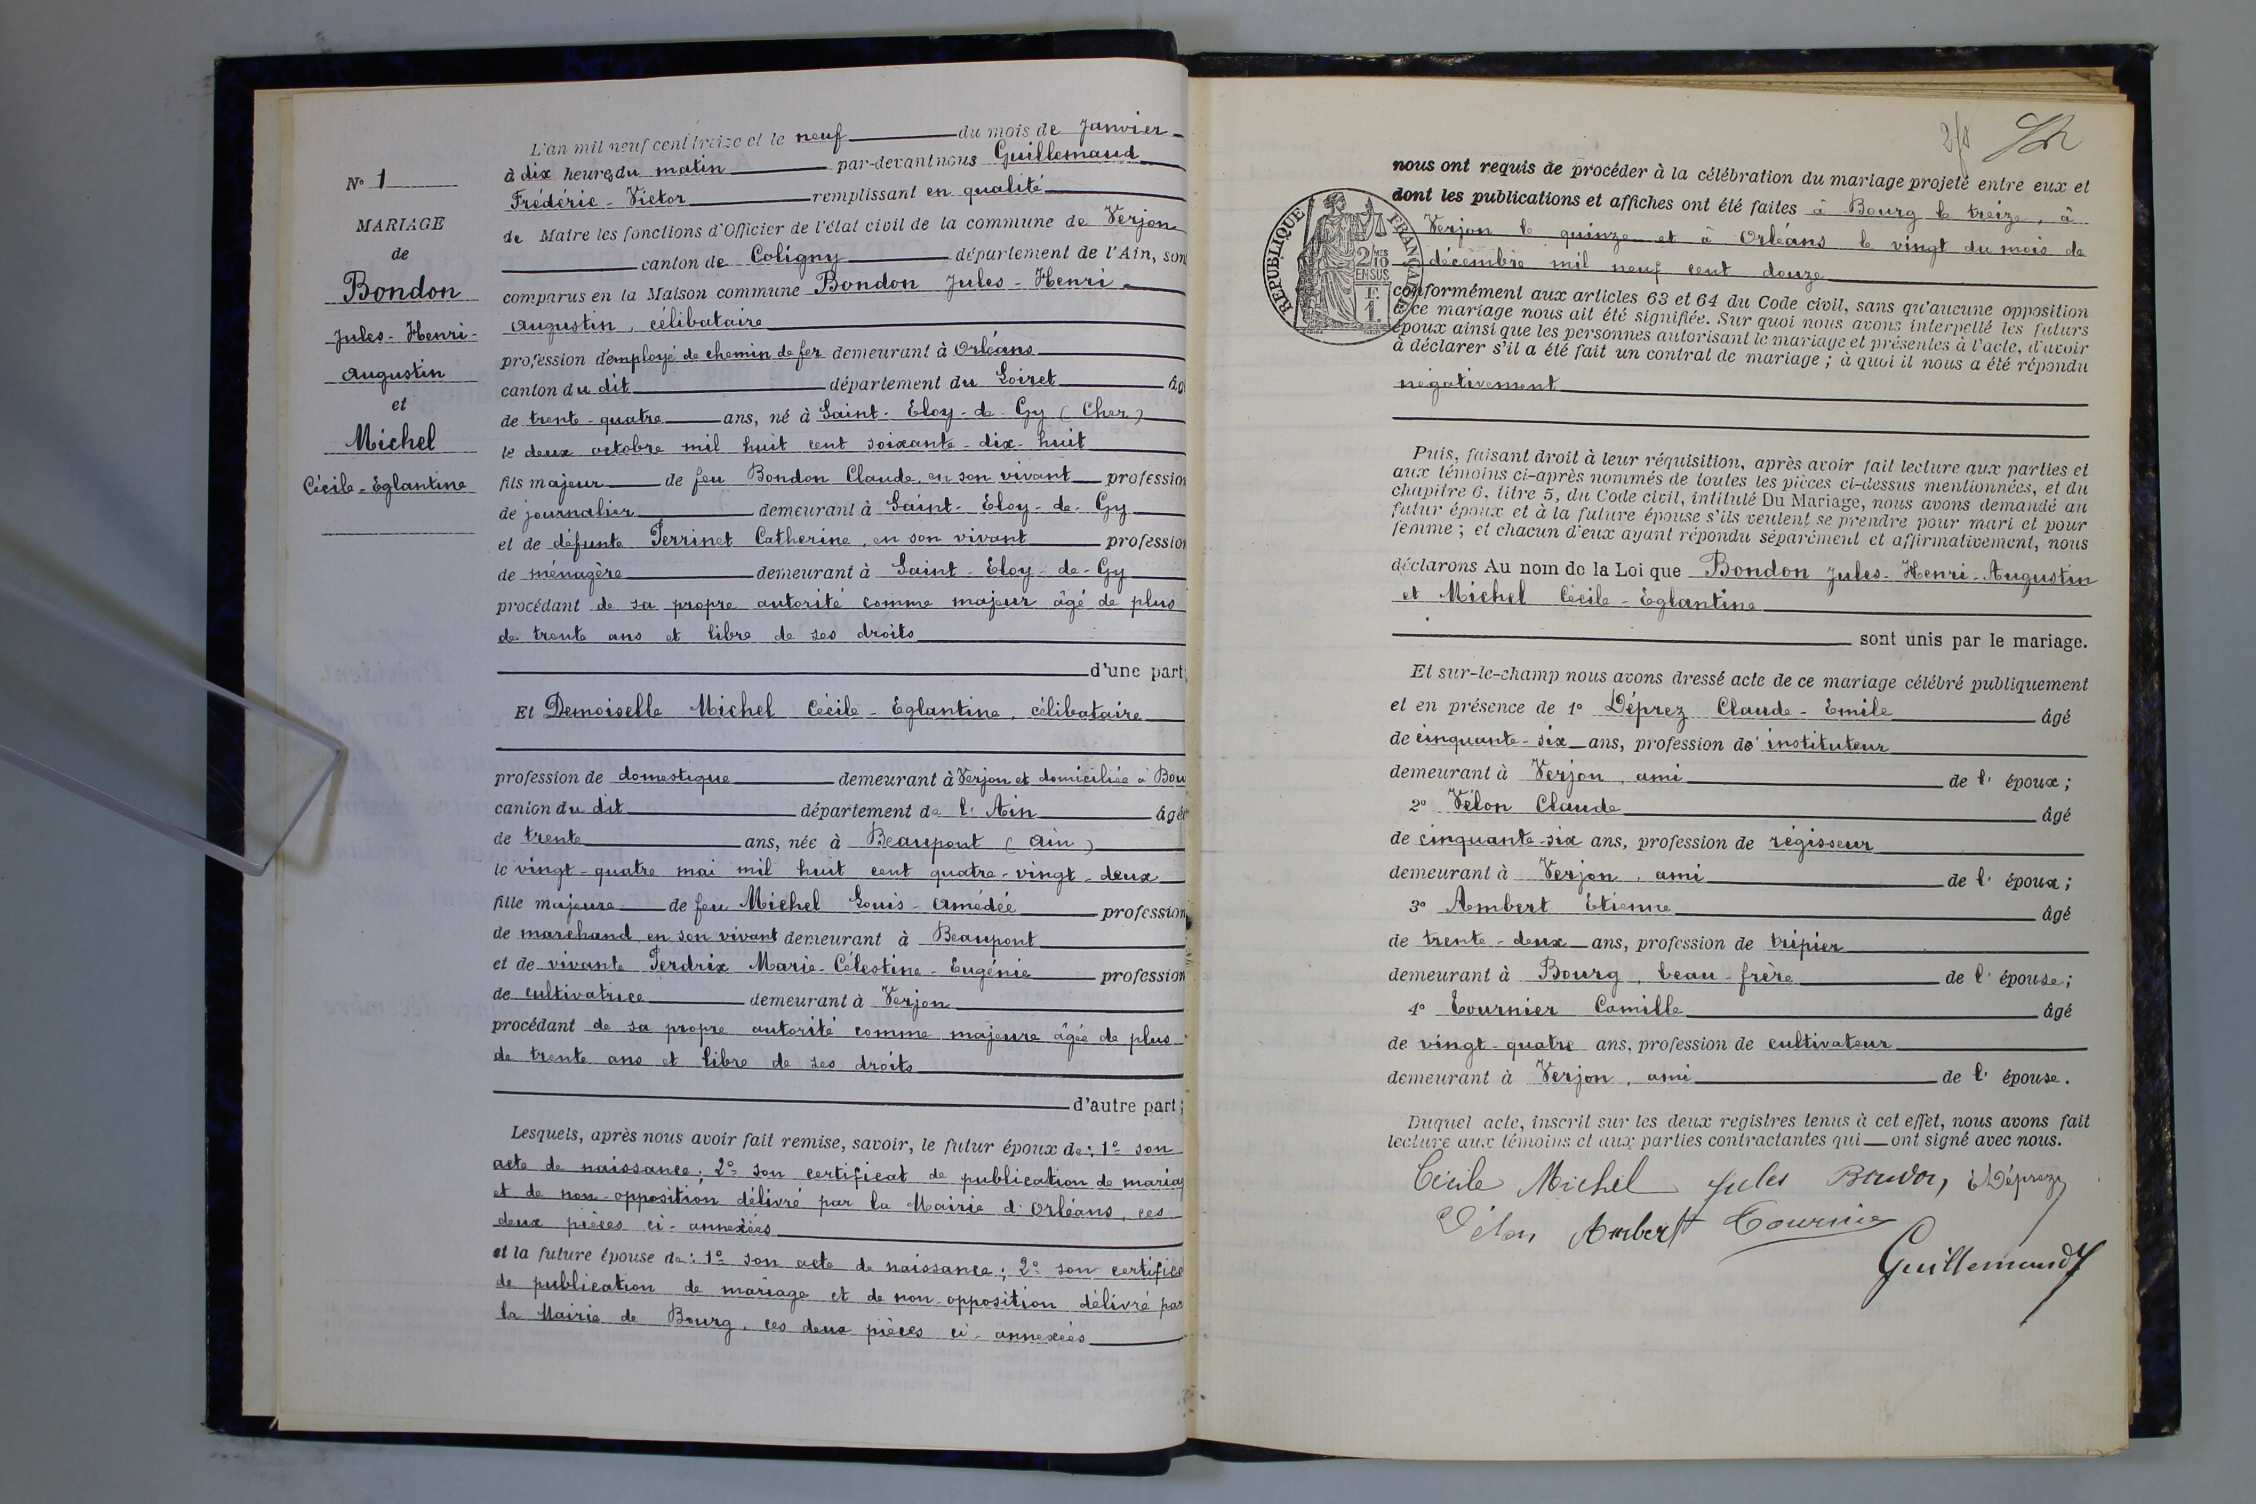 N° 1
MARIAGE
de
Bondon
Jules-Henri-
Augustin
et
Michel
Cécile-Eglantine
L'an mil neuf cent treize et le neuf du mois de Janvier
à dix heures du matin par-devant nous Guillemaud
Frédéric-Victor remplissant en qualité
de Maire les fonctions d'Officier de l'état civil de la commune de Verjon
canton de Coligny département de l'Ain, son
comparus en la Maison commune Bondon Jules-Henri-
Augustin, célibataire
profession d'employé de chemin de fer demeurant à Orléans
canton du dit département du Loiret âg
de trente-quatre ans, né à Saint-Eloy-de-Gy (Cher)
le deux octobre mil huit cent soixante-dix-huit
fils majeur de feu Bondon Claude, en son vivant profession
de journalier demeurant à Saint-Eloy-de-Gy
et de défunte Perrinet Catherine, en son vivant profession
de ménagère demeurant à Saint-Eloy-de-Gy
procédant de sa propre autorité comme majeur âgé de plus
de trente ans et libre de ses droits
d'une part;
Et Demoiselle Michel Cécile-Eglantine, célibataire
profession de domestique demeurant à Verjon et domiciliée à Bou
canton du dit département de l'Ain âgée
de trente ans, née à Beaupont (Ain)
le vingt-quatre mai mil huit cent quatre-vingt-deux
fille majeure de feu Michel Louis-Amédée profession
de marchand en son vivant demeurant à Beaupont
et de vivante Perdrix Marie-Célestine-Eugénie profession
de cultivatrice demeurant à Verjon
procédant de sa propre autorité comme majeure âgée de plus
de trente ans et libre de ses droits
d'autre part;
Lesquels, après nous avoir fait remise, savoir, le futur époux de: 1° son
acte de naissance; 2° son certificat de publication de mariag
et de non-opposition délivré par la Mairie d'Orléans, ces
deux pièces ci-annexées
et la future épouse de: 1° son acte de naissance; 2° son certifica
de publication de mariage et de non-opposition délivré par
la Mairie de Bourg, ces deux pièces ci-annexées
2/8
RÉPUBLIQUE FRANÇAISE
2/10 MES
EN SUS
F.
1.
nous ont requis de procéder à la célébration du mariage projeté entre eux et
dont les publications et affiches ont été faites à Bourg le treize, à
Verjon le quinze et à Orléans le vingt du mois de
décembre mil neuf cent douze
conformément aux articles 63 et 64 du Code civil, sans qu'aucune opposition
à ce mariage nous ait été signifiée. Sur quoi nous avons interpellé les futurs
époux ainsi que les personnes autorisant le mariage et présentes à l'acte, d'avoir
à déclarer s'il a été fait un contrat de mariage; à quoi il nous a été répondu
négativement
Puis, faisant droit à leur réquisition, après avoir fait lecture aux parties et
aux témoins ci-après nommés de toutes les pièces ci-dessus mentionnées, et du
chapitre 6, titre 5, du Code civil, intitulé Du Mariage, nous avons demandé au
futur époux et à la future épouse s'ils veulent se prendre pour mari et pour
femme; et chacun d'eux ayant répondu séparément et affirmativement, nous
déclarons Au nom de la Loi que Bondon Jules-Henri-Augustin
et Michel Cécile-Eglantine
sont unis par le mariage.
Et sur-le-champ nous avons dressé acte de ce mariage célébré publiquement
et en présence de 1° Déprez Claude-Emile âgé
de cinquante-six ans, profession d'instituteur
demeurant à Verjon, ami de l'époux;
2° Vélon Claude âgé
de cinquante-six ans, profession de régisseur
demeurant à Verjon, ami de l'époux;
3° Ambert Etienne âgé
de trente-deux ans, profession de tripier
demeurant à Bourg, beau-frère de l'épouse;
4° Tournier Camille âgé
de vingt-quatre ans, profession de cultivateur
demeurant à Verjon, ami de l'épouse.
Duquel acte, inscrit sur les deux registres tenus à cet effet, nous avons fait
lecture aux témoins et aux parties contractantes qui ont signé avec nous.
Cécile Michel Jules Bondon, E Déprez
Vélon Ambert Tournier
Guillemaud